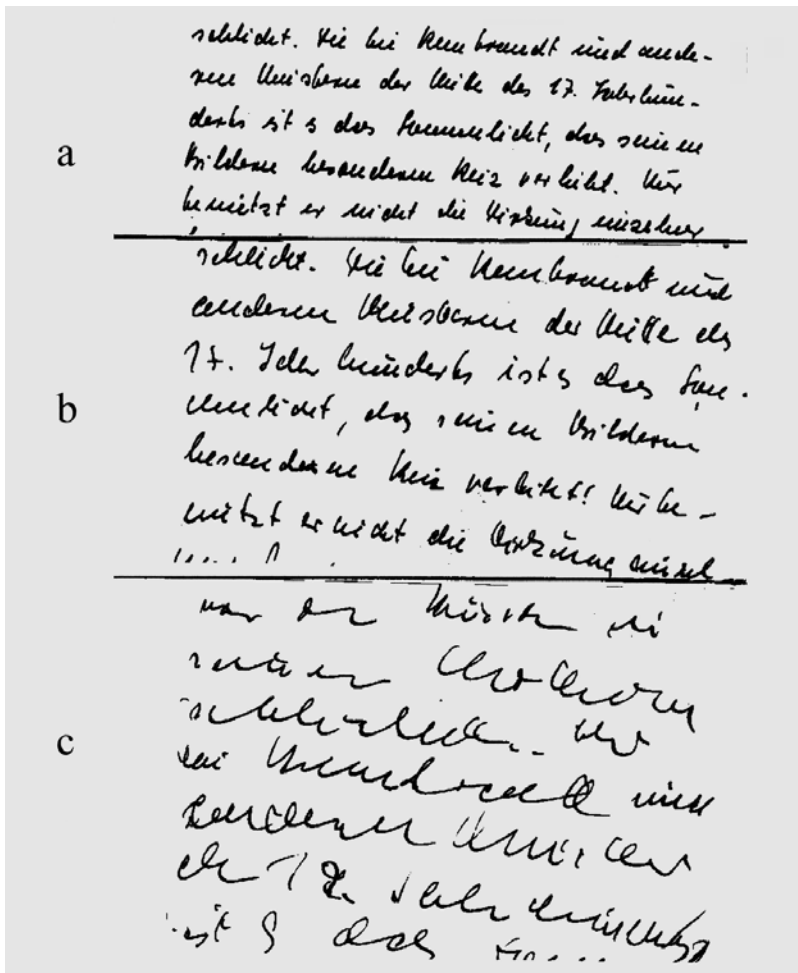 schlicht. Wie bei Rembrandt und ande-
ren Meistern der Mitte des 17. Jahrhun-
derts ist es das Sonnenlicht, das seinen
a
Bildern besonderen Reiz verleiht. Hier
benützt er nicht die Wirkung einzelner
schlicht. Wie bei Rembrandt und
anderen Meistern der Mitte des
17. Jahrhunderts ist es das Son-
b
nenlicht, das seinen Bildern
besonderen Reiz verleiht! Hier be-
nützt er nicht die Wirkung einzel
war der in
seinen
c
bei Rembrandt und
anderen Meister
der 17. Jahrhunderts
ist es das